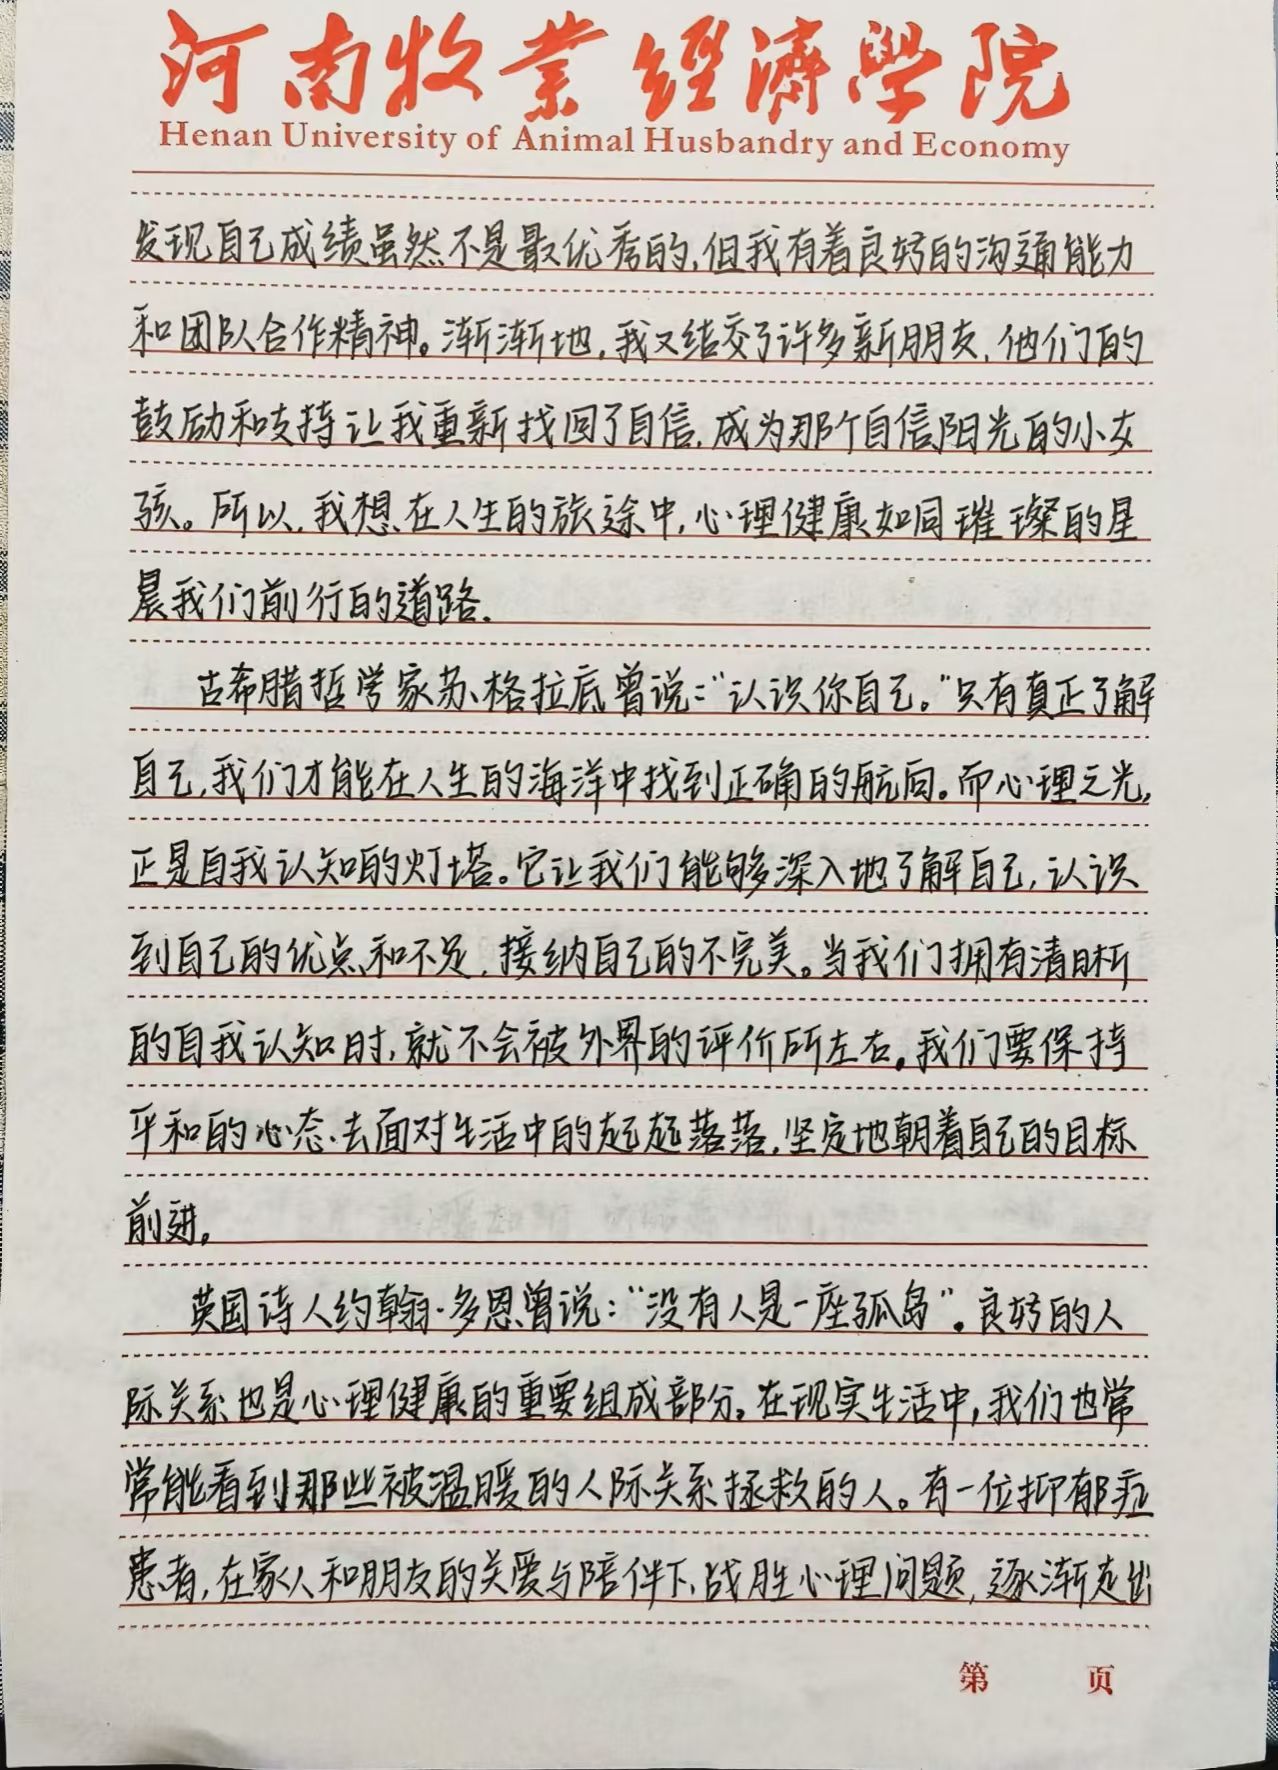 河南牧業經濟學院
Henan University of Animal Husbandry and Economy
发现自己成绩虽然不是最优秀的,但我有着良好的沟通能力
和团队合作精神。渐渐地,我又结交了许多新朋友,他们的
鼓励和支持让我重新找回了自信,成为那个自信阳光的小女
孩。所以,我想在人生的旅途中,心理健康如同璀璨的星
晨我们前行的道路.
古希腊哲学家苏格拉底曾说:“认识你自己。”只有真正了解
自己,我们才能在人生的海洋中找到正确的航向。而心理之光,
正是自我认知的灯塔。它让我们能够深入地了解自己,认识
到自己的优点和不足,接纳自己的不完美。当我们拥有清晰
的自我认知时,就不会被外界的评价所左右。我们要保持
平和的心态、去面对生活中的起起落落,坚定地朝着自己的目标
前进。
英国诗人约翰·多恩曾说:“没有人是一座孤岛”。良好的人
际关系也是心理健康的重要组成部分。在现实生活中,我们也常
常能看到那些被温暖的人际关系拯救的人。有一位抑郁症
患者,在家人和朋友的关爱与陪伴下,战胜心理问题,逐渐走出
第 页